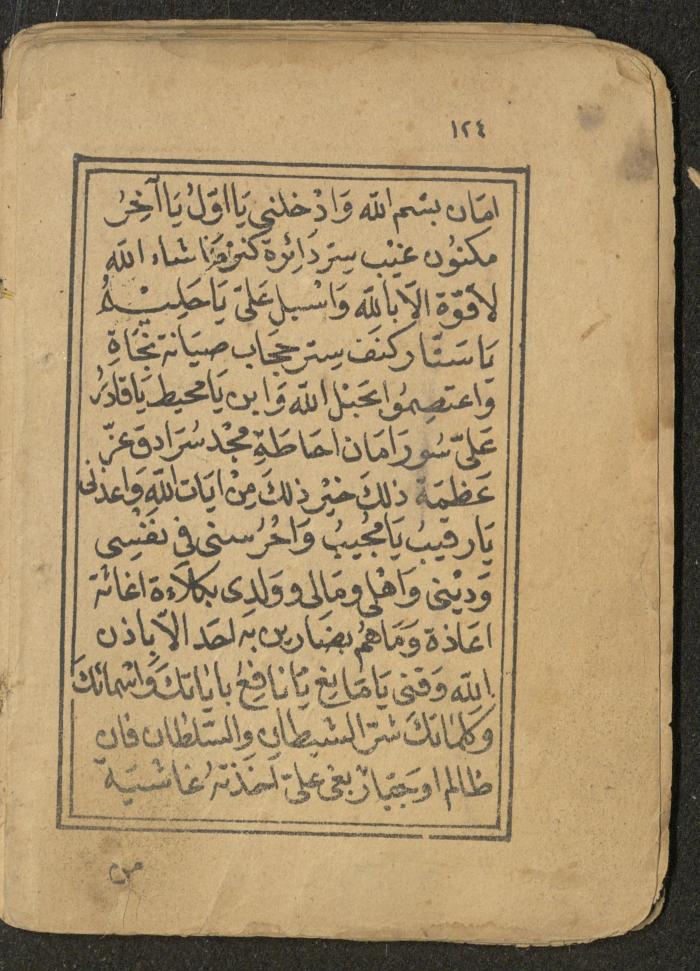 ١٢٤
امَان بسْم الله وَادْخلني يَا اوّلُ يَا آخِرُ
مكنوُن غيْب سِتر دَائِرة كنز مَا شاء الله
لَا قوّة الّا بالله وَاسْبل عَليّ يَا حَليْمُ
يَا سَتّار كنَف سِتر حجَاب صيَانة نجَاةِ
وَاعتصِمُوا بحَبْل الله وَابن يَا محيط يَا قادرُ
عَليّ سُور امَان احَاطَةِ مجْد سُرَادق عزّ
عَظمَة ذلكَ خيْر ذلكَ مِنْ ايَات اللهِ وَاعذني
يَا رقيبُ يَا مجُيبُ وَاحْرُسني في نفْسِي
وَديْني وَاهْلي ومَالي وولَدي بكلَاءة اغاثة
اعَاذة وَمَا هُم بضَارين بهِ احَد الّا باذن
الله وَقني يَا مَانِع يَا نَافِعُ باياتكَ وَاسْمائكَ
وَكلماتكَ شرّ الشيطان والسّلطان فان
ظالم او جَبّارٌ بغى عَليّ اَخَذتْهُ غاشيَة
من